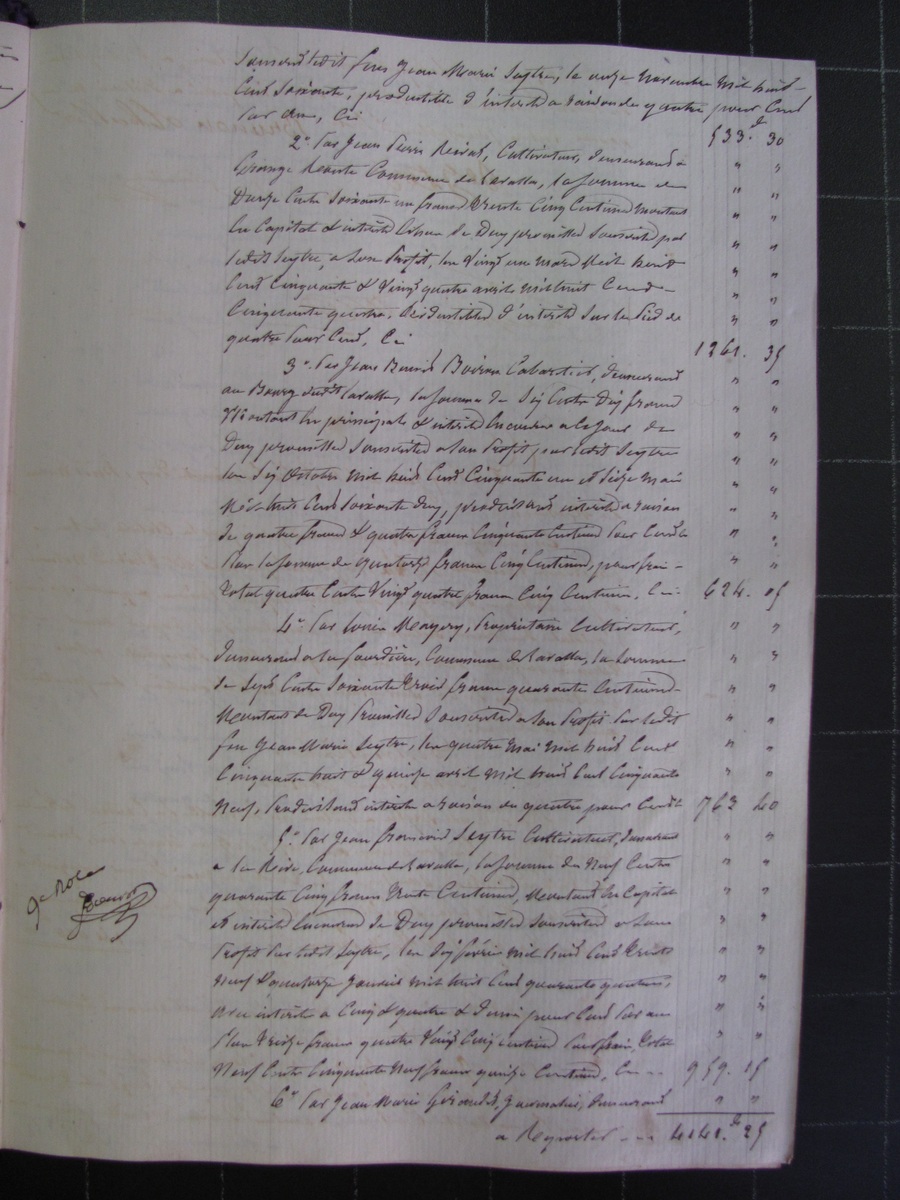 feu Jean Marie Seytre, le onze novembre mil huit
Cent Soixante, productible d'intérêts à raison de quatre pour Cent
par an, Ci 533.f 30
2° Par Jean Pierre Cultivateur, demeurant à
Grange Commune de Lavalla, la somme de
Douze Cents Soixante un francs Trente Cinq Centimes montant
En Capital & intérêts de Deux promesses Souscrites par
ledit Seytre, a Son Profit, les Vingt un mars Mil huit
Cent Cinquante & Vingt quatre avril mil huit Cent
Cinquante quatre, d'intérêts Sur le Pied de
quatre pour Cent, Ci 1261. 35
3° Par Jean Cabaretier, demeurant
au Bourg dudit Lavalla, la somme de Six Cents Dix francs
Montant En principal & intérêts à ce Jour de
Deux promesses Souscrites a Son Profit par ledit Seytre
les Six Octobre mil huit Cent Cinquante un et Seize mai
Mil huit Cent Soixante deux, intérêts a raison
de quatre francs & quatre francs Cinquante Centimes pour Cent
Plus la somme de quatorze francs Cinq Centimes, pour frais
Total Six Cents Vingt quatre francs Cinq Centimes, Ci 624. 05
4° Par Louis Propriétaire Cultivateur,
demeurant à la Commune de Lavalla, la Somme
de Sept Cents Soixante trois francs quarante Centimes
Montant de Deux Promesses Souscrites a Son Profit Par ledit
feu Jean Marie Seytre, les quatre Mai mil huit Cent
Cinquante huit & quinze avril Mil huit Cent Cinquante
Neuf, intérêts a raison de quatre pour Cent 763 40
5° Par Jean François Seytre Cultivateur, demeurant
à Commune de Lavalla, la somme de Neuf Cents
quarante Cinq francs Trente Centimes, Montant En Capital
et intérêts de Deux promesses Souscrites a Son
Profit Par ledit Seytre, les Dix février mil huit Cent Trente
Neuf & quatorze Janvier mil huit Cent quarante quatre,
avec intérêts a Cinq & quatre & demi pour Cent Par an
Plus Treize francs quatre Vingt Cinq Centimes Pour frais, Total
Neuf Cents Cinquante Neuf francs quinze Centimes, Ci 959. 15
6° Par Jean Marie Journalier, demeurant
a Reporter 4141.f 25